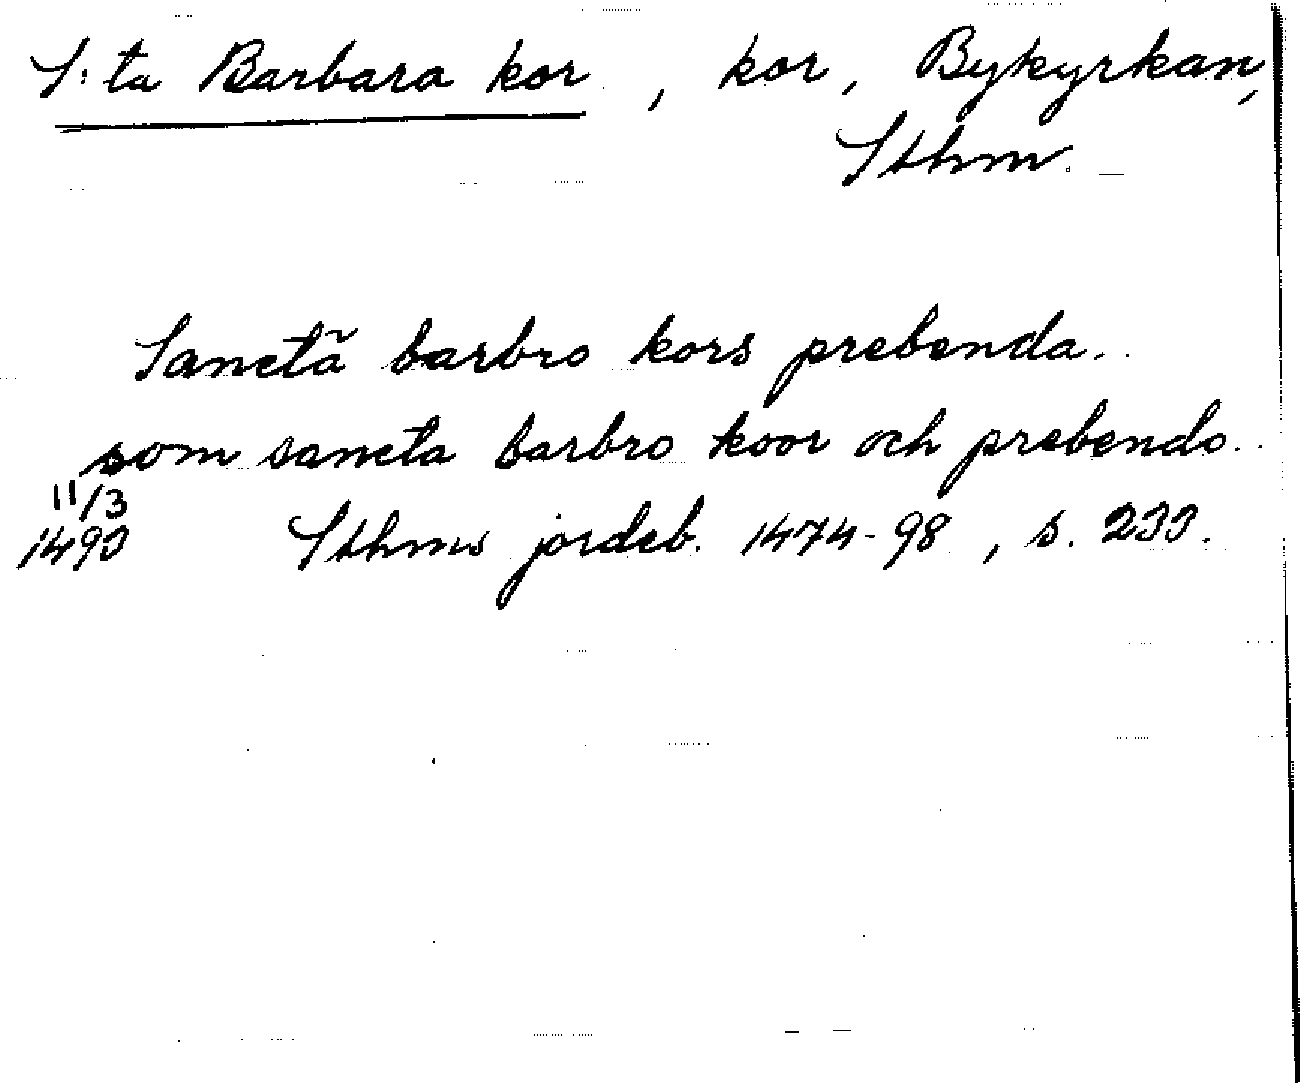 S:ta Barbara kor, kor, Bykyrkan,
Sthm.
Sanctã barbro kors prebenda..
som sancta barbro koor och prebendo..
11/3
1493 Sthms jordeb. 1474-98, s. 233.